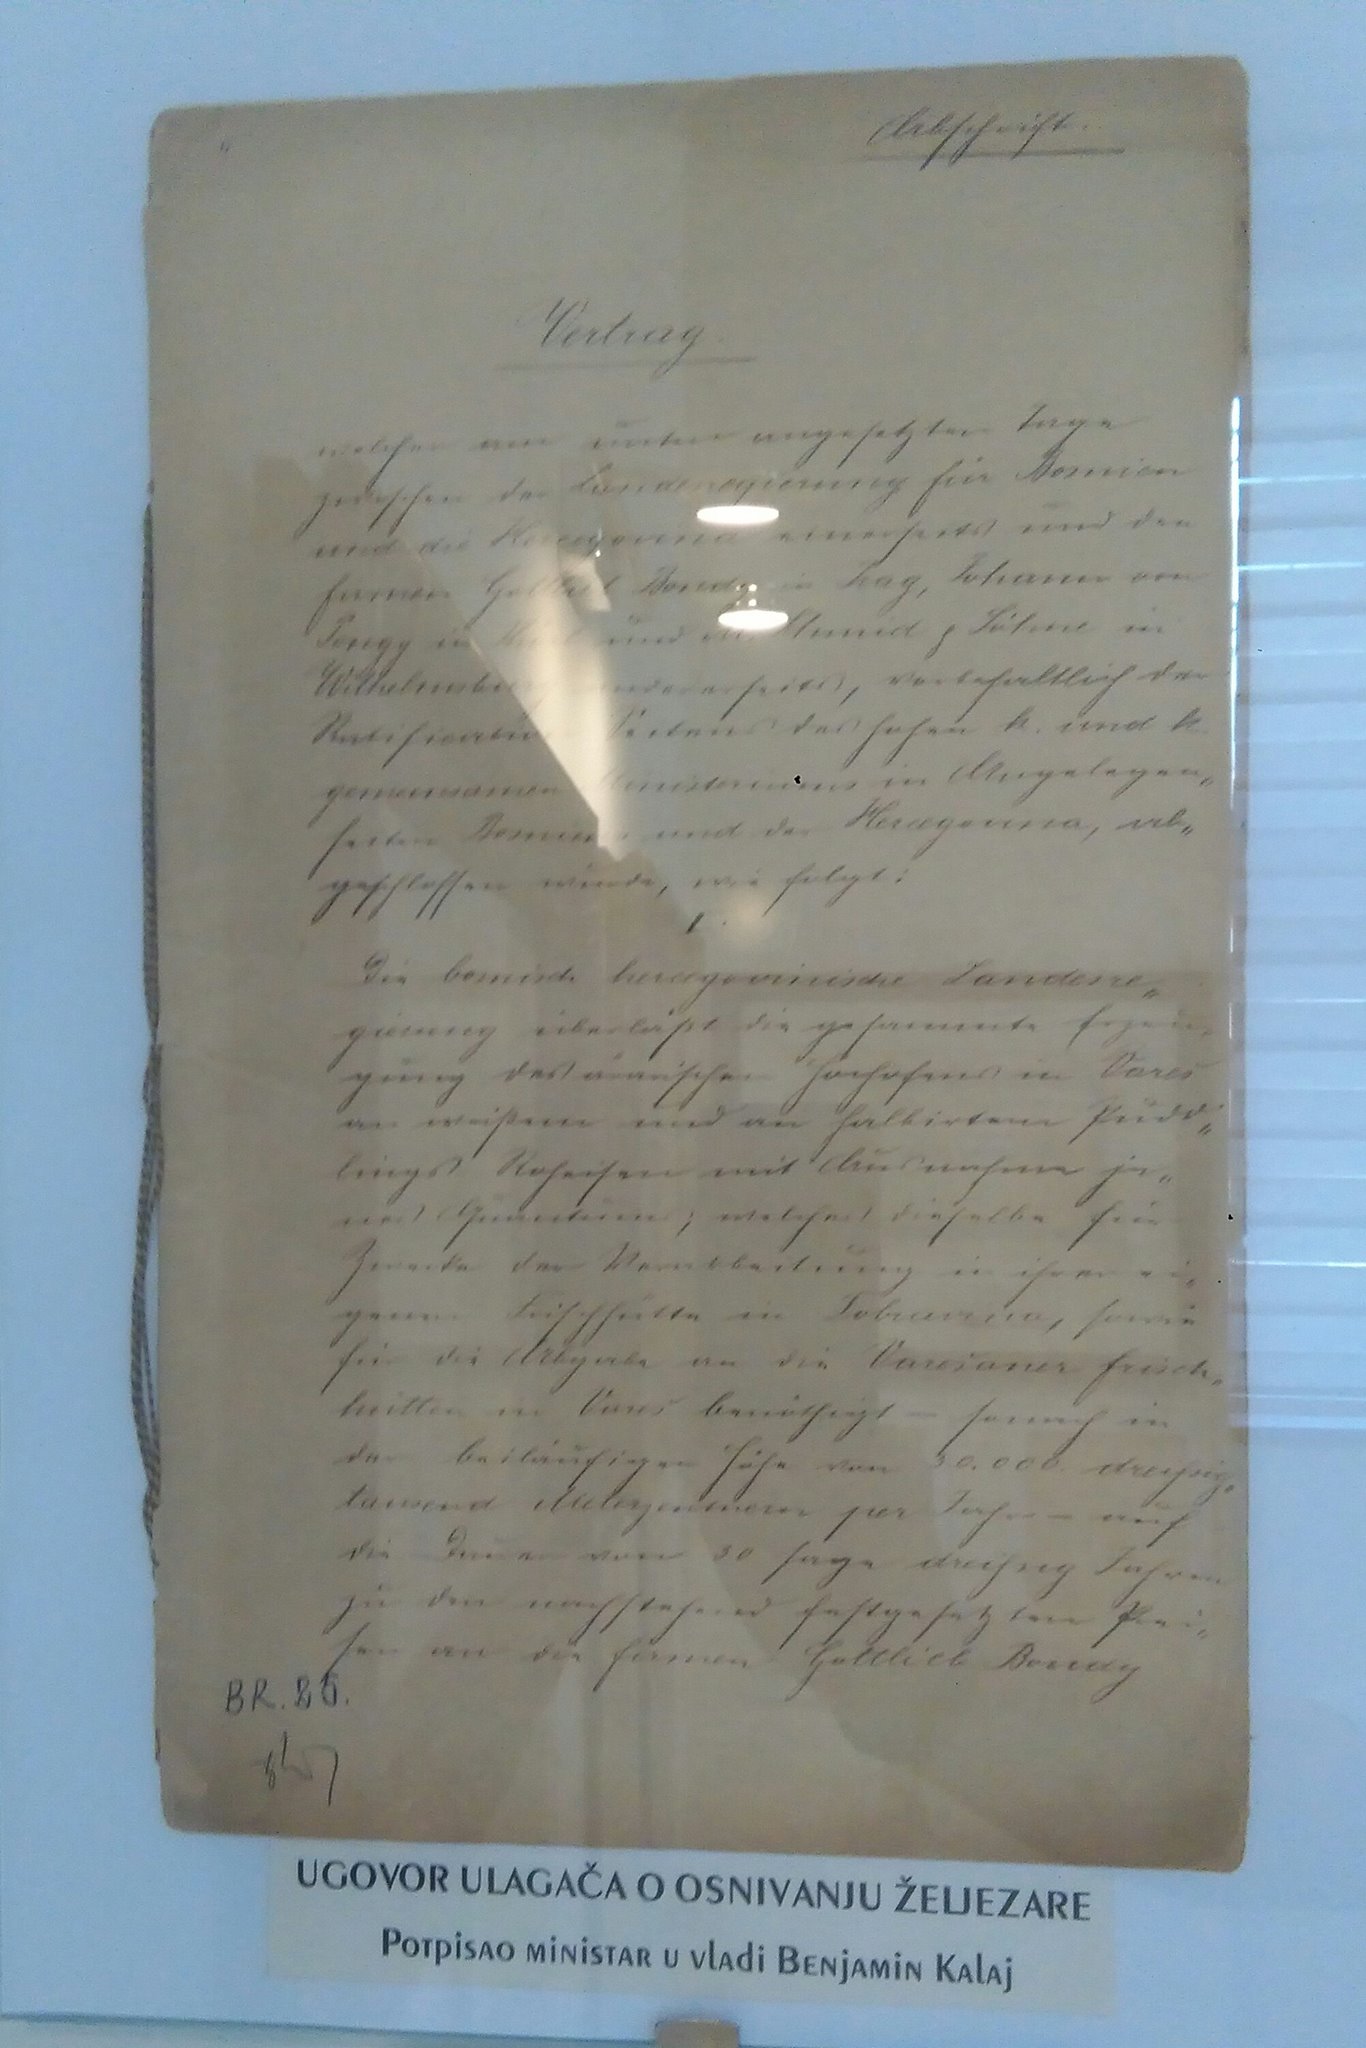 Abschrift.
Vertrag.
welcher am unten angesetzten Tage
zwischen der Landesregierung für Bosnien
und die Hercegovina einerseits und den
Firmen Gottlieb Bondy in Prag, Johann von
Pengg in und &amp; Söhne in
andererseits, vorbehaltlich der
Ratification Seitens des hohen k. und k.
gemeinsamen Ministeriums in Angelegen„
heiten Bosniens und der Hercegovina, ab„
geschlossen wurde, wie folgt:
1.
Die bosnisch hercegovinische Landesre„
gierung überläßt die gesammte Erzeu„
gung des ärarischen Hochofens in Vareš
an weißem und an halbirtem Pudd„
lings Roheisen mit Ausnahme je„
nes Quantums, welches dieselbe für
Zwecke der Verarbeitung in ihrer ei„
genen Frischhütte in sowie
für die Abgabe an die Varešaner Frisch„
hütten in Vareš benöthigt – sonach in
der beiläufigen Höhe von 30.000 dreißig„
tausend Meterzentnern per Jahr – auf
die Dauer von 30 sage dreißig Jahren
zu den nachstehend festgesetzten Prei„
sen an die Firmen Gottlieb Bondy
BR.
UGOVOR ULAGAČA O OSNIVANJU ŽELJEZARE
Potpisao ministar u vladi Benjamin Kalaj